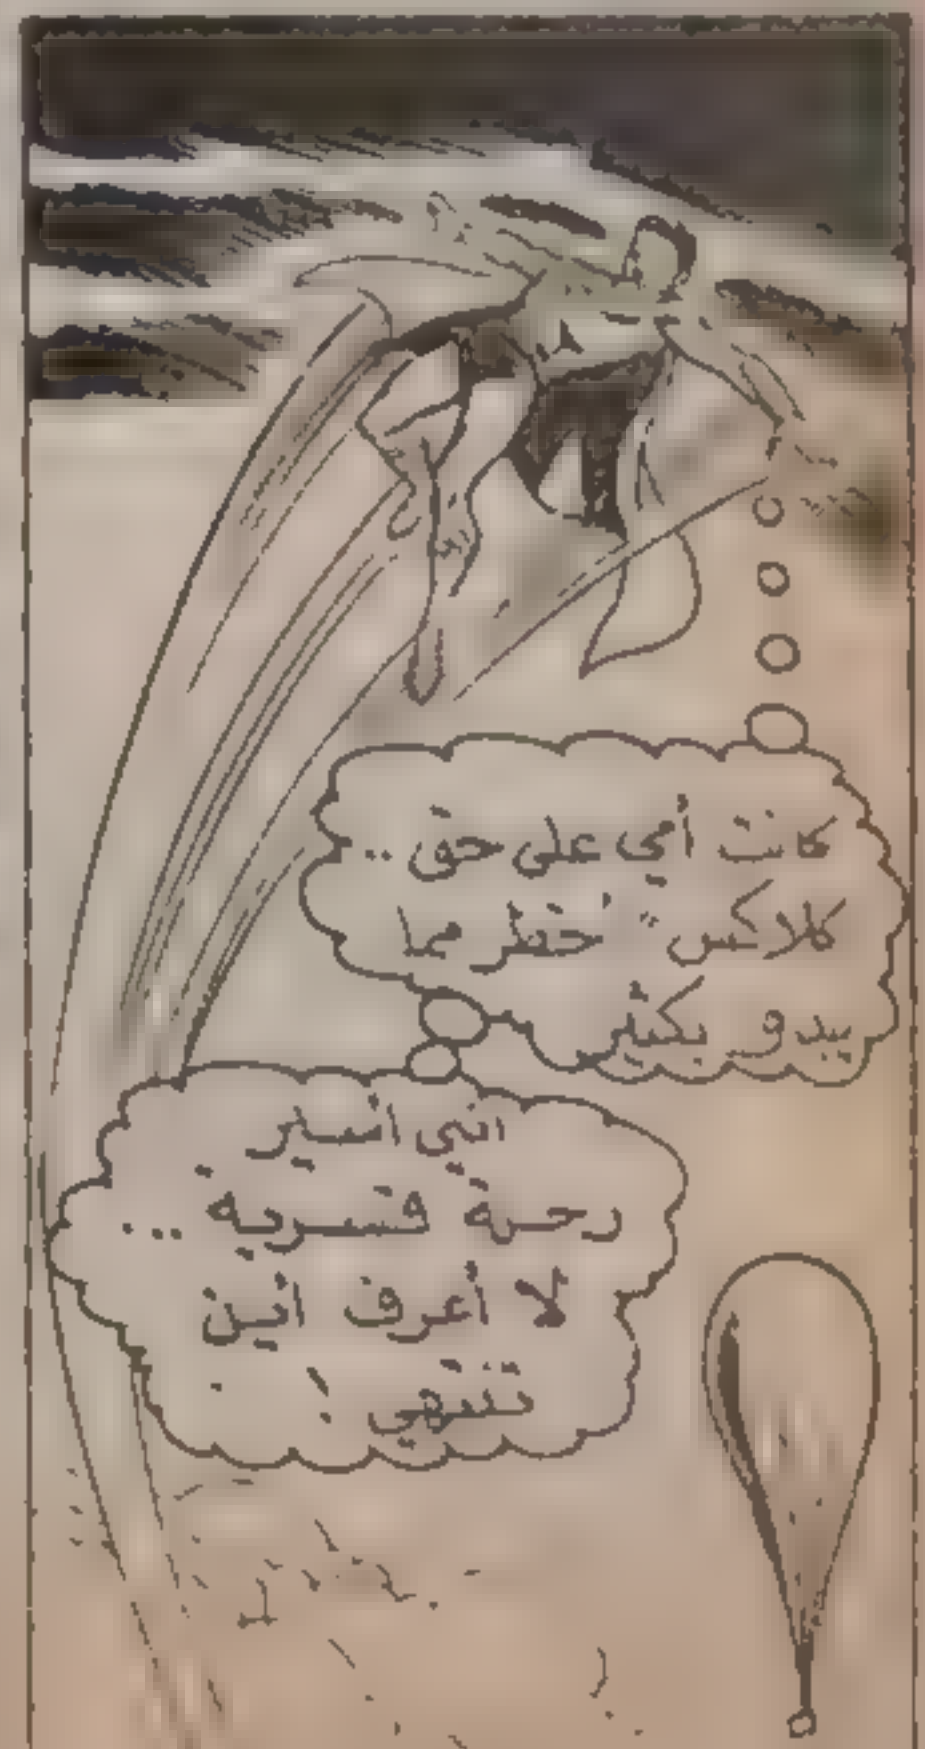 كانت أمي على حق ..
كلاكس" خطر مما
يبدو بكثير
انى أسير
رحلة قسرية ...
لا أعرف أين
تنتهي !